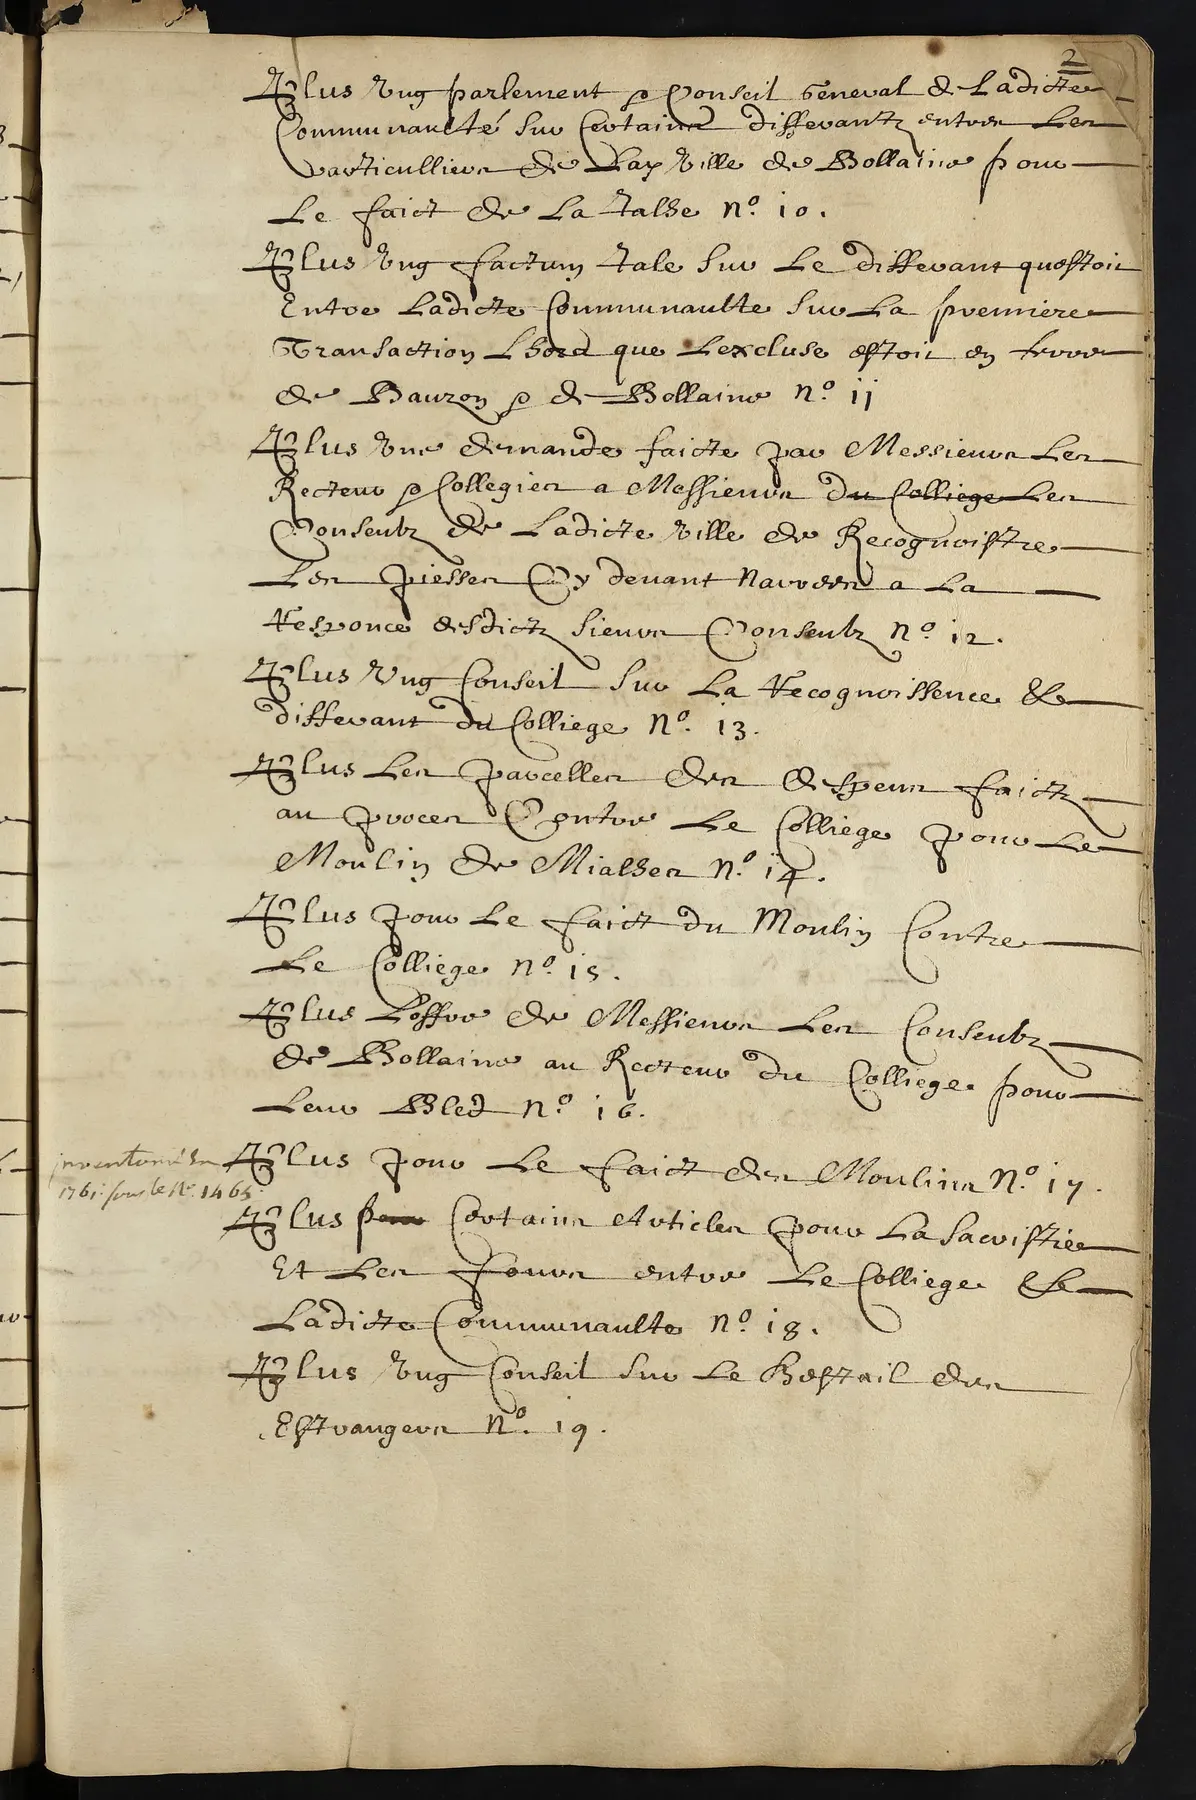 2
Plus Ung parlement & Conseil General de Ladicte
Communaulté sur Certains differantz entre Les
particulliers de Lay Ville de Bollaine pour
Le faict de La talhe n.º 10.
Plus Ung factum tale sur Le differant questoit
Entre Ladicte Communaulte sur La premiere
Transaction que Lexcluse estoit en terre
de Bauzon & de Bollaine n.º 11
Plus Une demande faicte par Messieurs Les
Recteur & Collegies a Messieurs du Colliege Les
Conseulz de Ladicte Ville de Recognoistre
Les piesses Cy devant narrees a La
Responce desdictz sieurs Conseulz n.º 12.
Plus Ung Conseil sur La Recognoissence & Le
differant du Colliege n.º 13.
Plus Les parcelles des despens faictz
au proces Contre Le Colliege pour Le
Moulin de Mialhes n.º 14.
Plus pour Le faict du Moulin Contre
Le Colliege n.º 15.
Plus Loffre de Messieurs Les Conseulz
de Bollaine au Recteur du Colliege pour
Leur Bled n.º 16.
Plus pour Le faict des Moulins n.º 17.
inventorié en
1761: sous le Nº. 1465.
Plus pour Certains Articles pour La Sacristie
Et Les fours entre Le Colliege & Le
Ladicte Communaulte n.º 18.
Plus Ung Conseil sur Le Bestail des
Estrangers n.º 19.